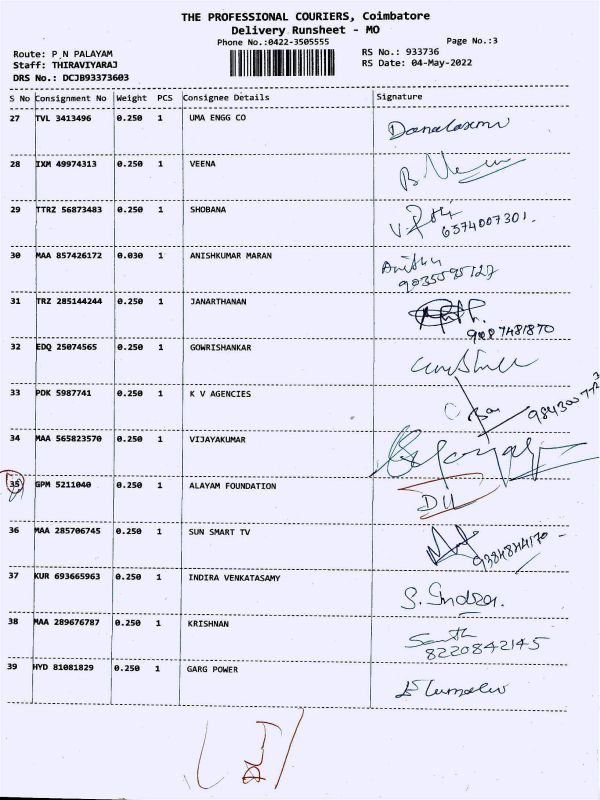 THE PROFESSIONAL COURIERS, Coimbatore
Delivery Runsheet - MO
Phone No.:0422-3505555
Page No.:3
Route: P_N PALAYAM
RS No.: 933736
Staff: THIRAVIYARAJ
RS Date: 04-May-2022
DRS No.: DCJB93373603
S No Consignment No Weight PCS Consignee Details Signature
27 TVL 3413496 0.250 1 UMA ENGG CO
28 IXM 49974313 0.250 1 VEENA
29 TTRZ 56873483 0.250 1 SHOBANA
6374007301.
30 MAA 857426172 0.030 1 ANISHKUMAR MARAN
31 TRZ 285144244 0.250 1 JANARTHANAN
9087481870
32 EDQ 25074565 0.250 1 GOWRISHANKAR
33 PDK 5987741 0.250 1 K V AGENCIES
34 MAA 565823570 0.250 1 VIJAYAKUMAR
35 GPM 5211040 0.250 1 ALAYAM FOUNDATION
DU
36 MAA 285706745 0.250 1 SUN SMART TV
37 KUR 693665963 0.250 1 INDIRA VENKATASAMY
S. Indra.
38 MAA 289676787 0.250 1 KRISHNAN
8220842145
39 HYD 81081829 0.250 1 GARG POWER